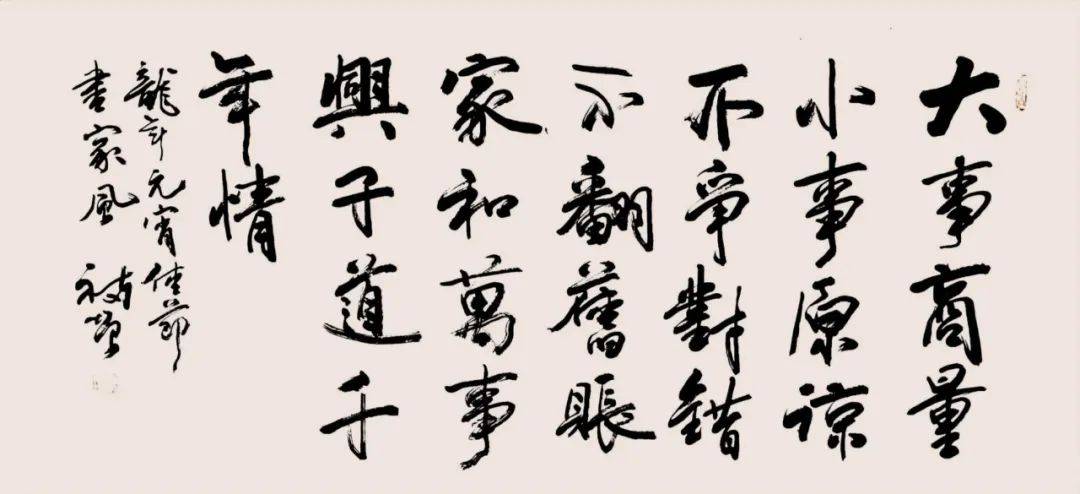 大事商量
小事原諒
不爭對錯
不翻舊賬
家和萬事
興子道千
年情
龍年元宵佳節
書家風